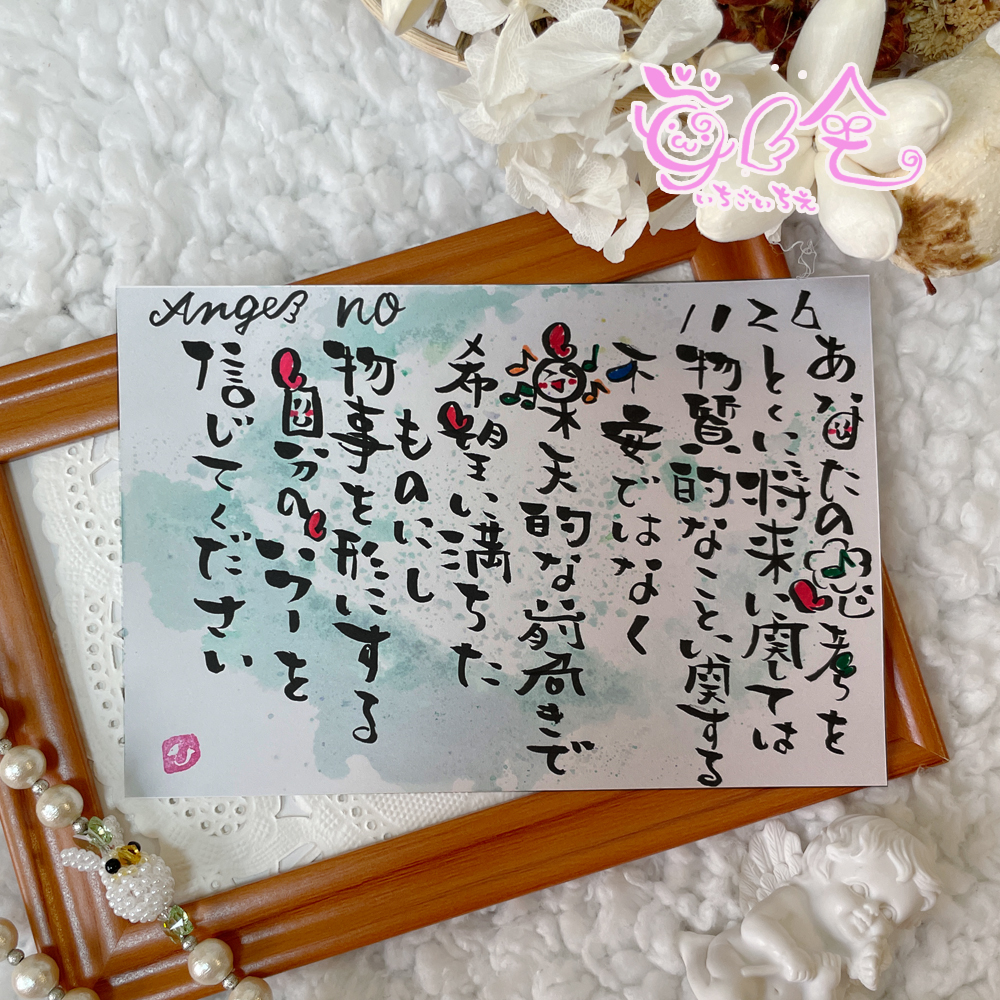 Angel no 1126
あなたの思考を
とくに将来に関しては
物質的なことに関する
不安ではなく
楽天的な前向きで
希望に満ちた
ものにし
物事を形にする
自分のパワーを
信じてください
いちごいちえ